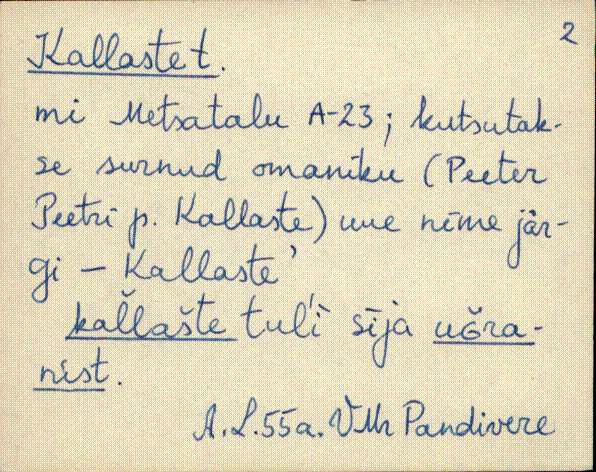 2
Kallaste t.
mi Metsatalu A-23; kutsutak-
se surnud omaniku (Peeter
Peetri p. Kallaste) uue nime jär-
gi – Kallaste'
kal̆lašte tul'i sīja uĕra-
nist.
A.L. 55a. VMr Pandivere